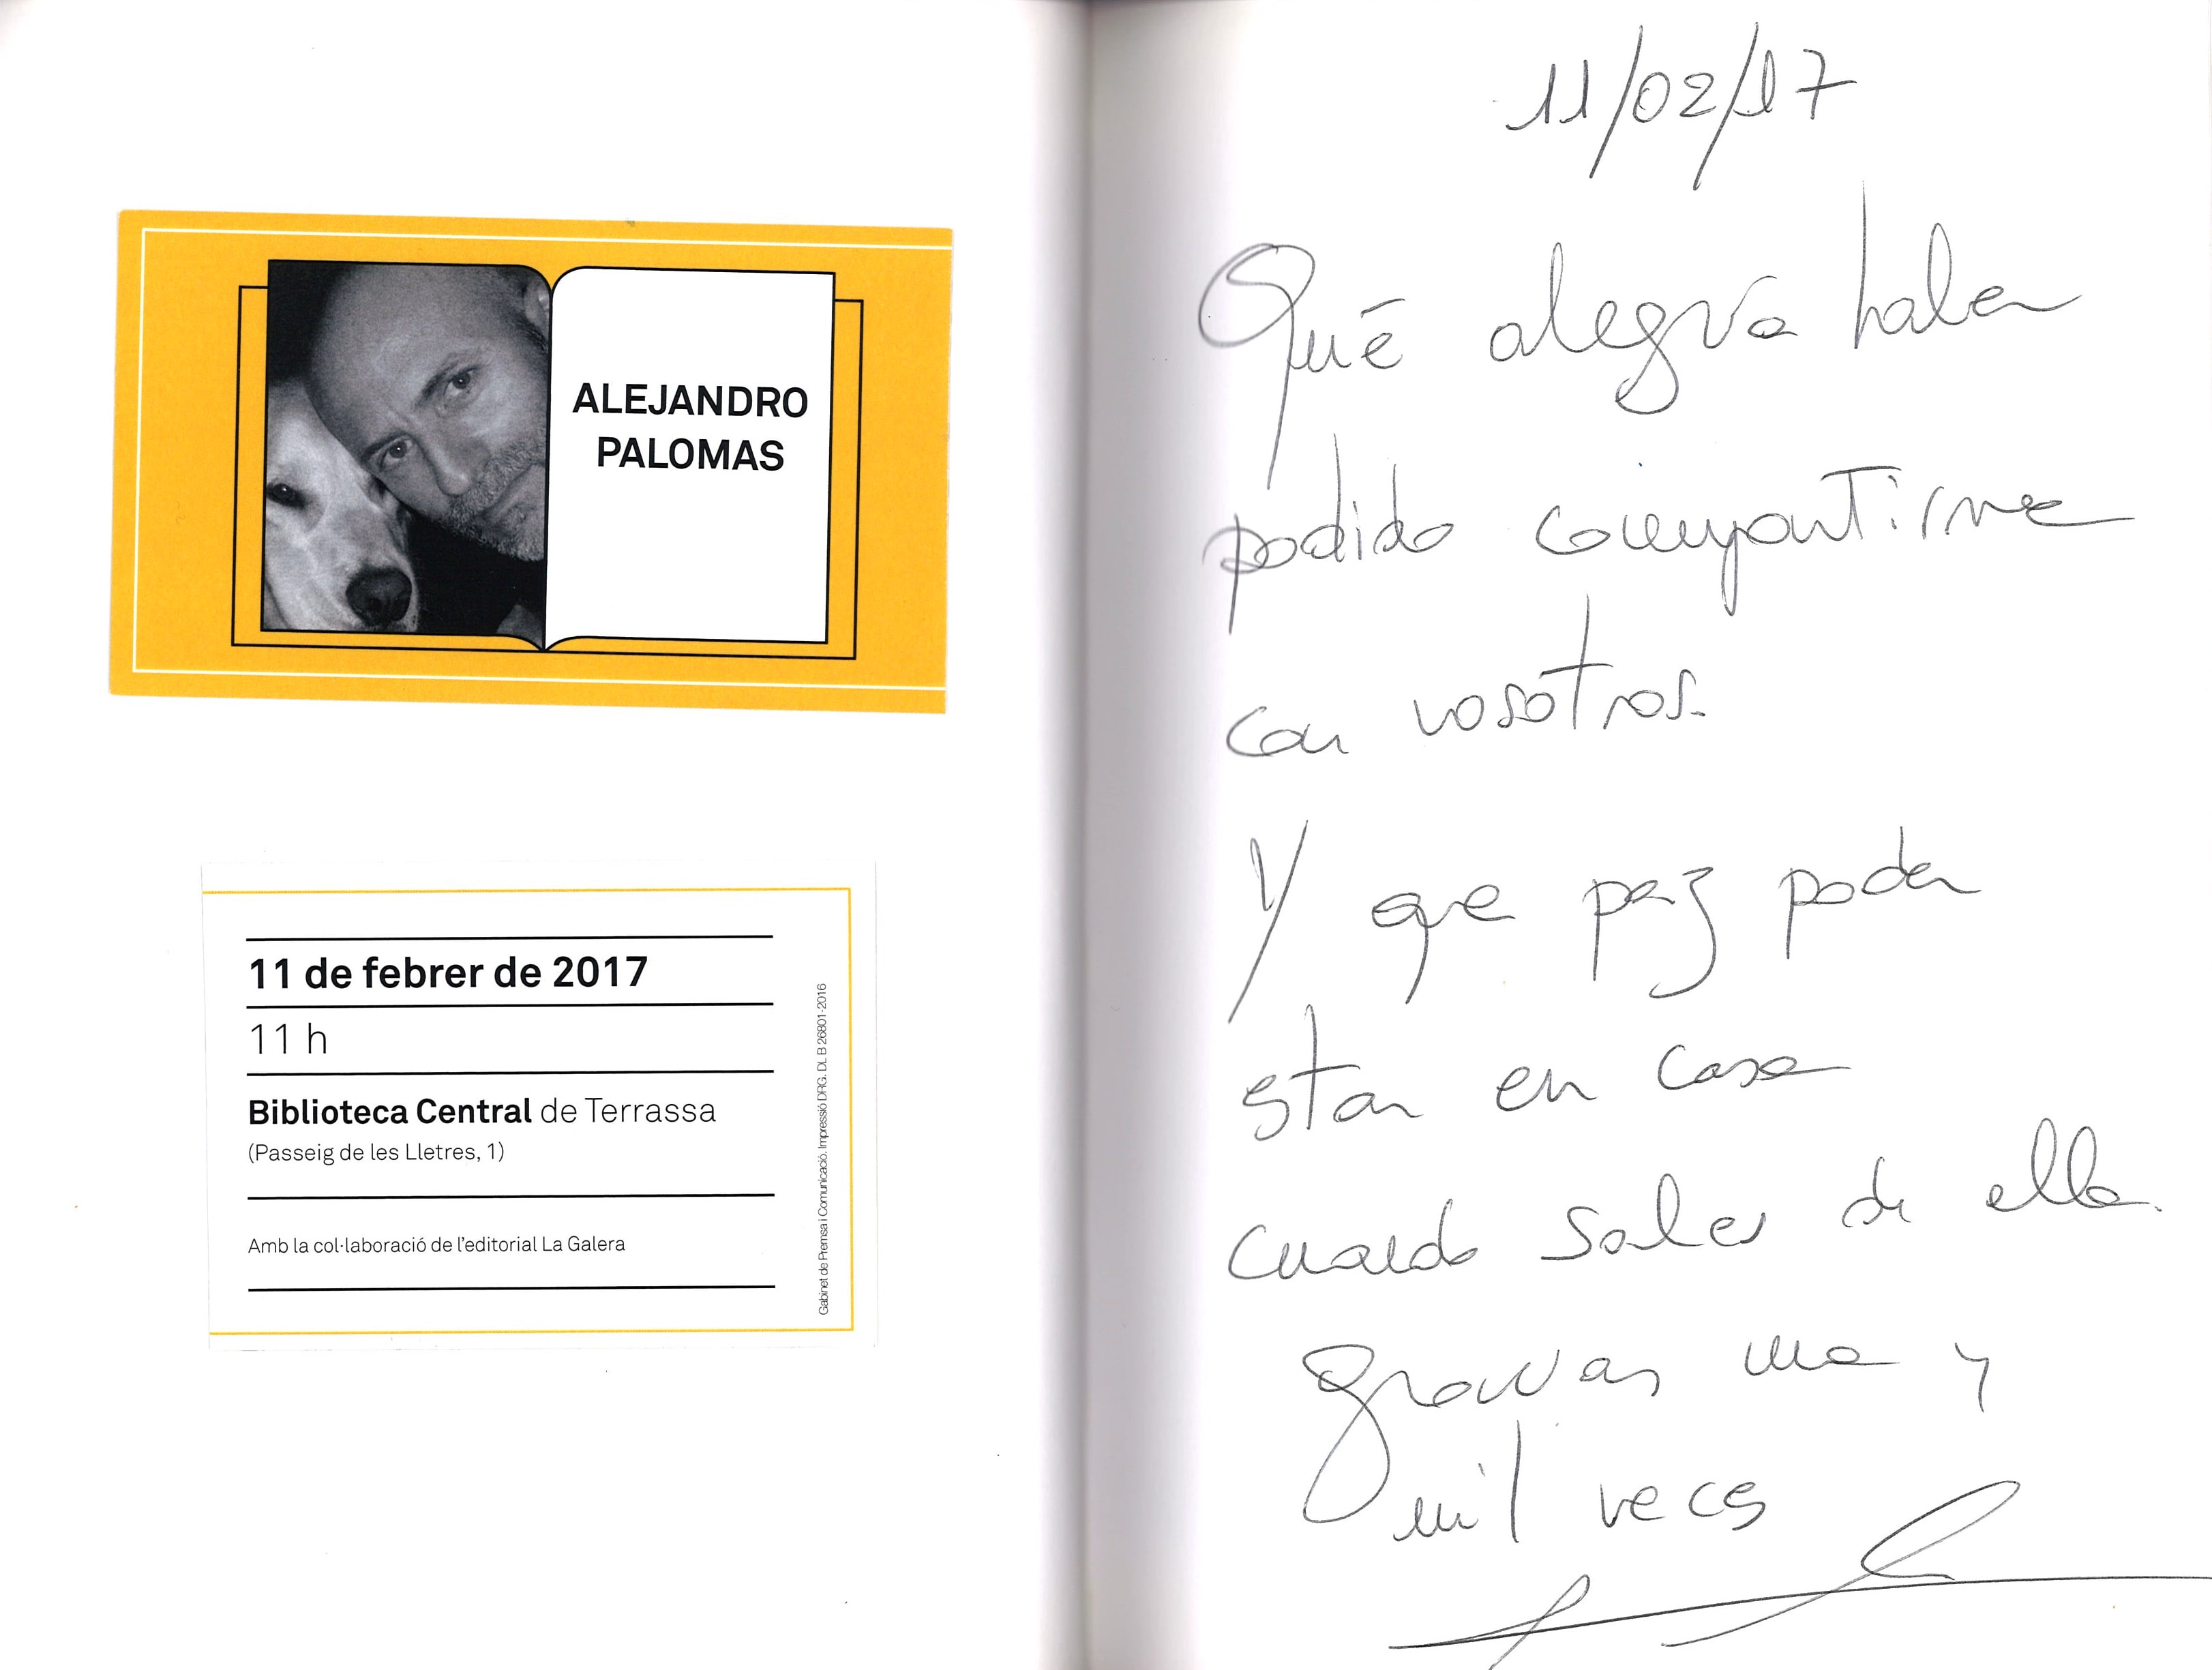 ALEJANDRO
PALOMAS
11 de febrer de 2017
11 h
Biblioteca Central de Terrassa
(Passeig de les Lletres, 1)
Amb la col·laboració de l'editorial La Galera
Gabinet de Premsa i Comunicació. Impressió DRG. DL B 26801-2016
11/02/17
Qué alegría haber
podido compartirme
con vosotros.
Y que paz poder
estar en casa
cuando sales de ella.
Gracias una y
mil veces